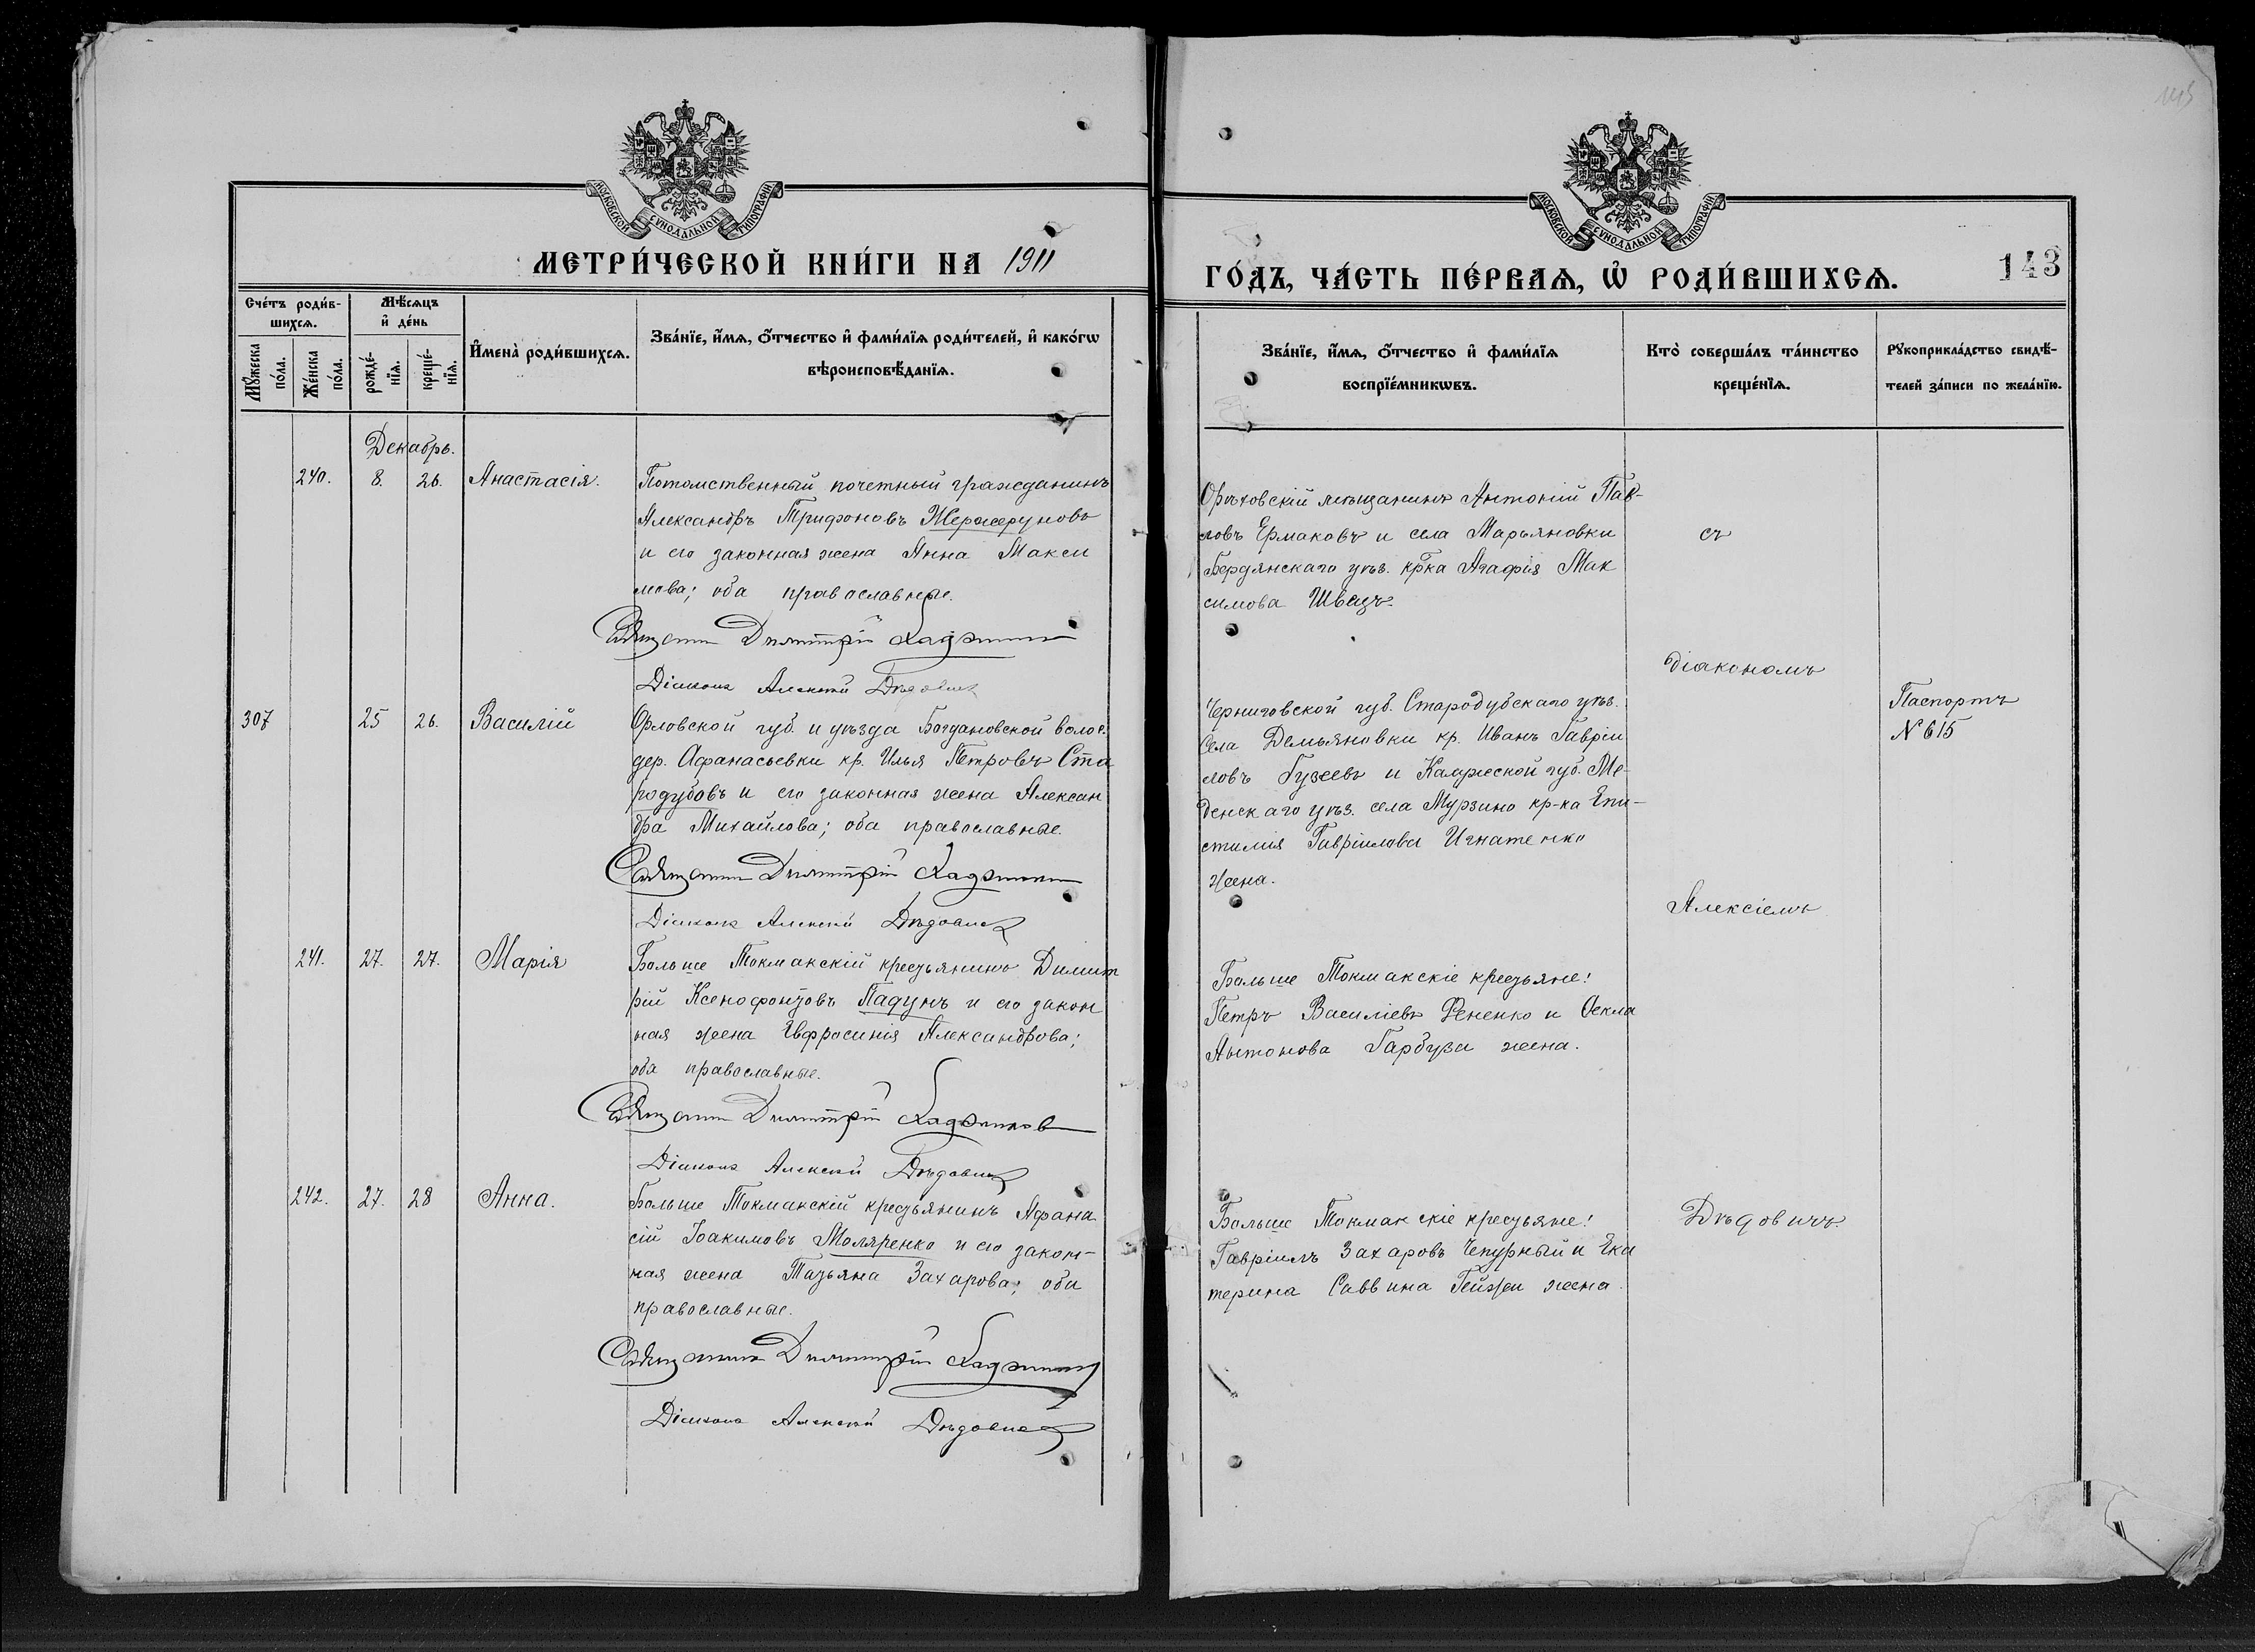 145
МОСКОВСКОЙ СУНОДАЛЬНОЙ ТИПОГРАФІИ
МОСКОВСКОЙ СУНОДАЛЬНОЙ ТИПОГРАФІИ
МЕТРИ́ЧЕСКОЙ КНИ́ГИ НА 1911
ГО́ДЪ, ЧА́СТЬ ПЕ́РВАѦ, Ѿ РОДИ́ВШИХСѦ.
143
Сче́тъ роди́в-
шихсѧ.
Мꙋ́жеска
по́ла.
Же́нска
по́ла.
Мѣ́сѧцъ
и҆ де́нь
рожде́-
нїѧ.
креще́-
нїѧ.
И҆мена̀ роди́вшихсѧ.
Зва́нїе, и҆́мѧ, ѻ҆́тчество и҆ фами́лїѧ роди́телей, и҆ како́гѡ
вѣроисповѣ́данїѧ.
Зва́нїе, и҆́мѧ, ѻ҆́тчество и҆ фами́лїѧ
воспрїе́мникѡвъ.
Кто̀ соверша́лъ та́инство
креще́нїѧ.
Рꙋкоприкла́дство свидѣ́-
телей за́писи по жела́нїю.
Декабрь.
240. 8. 26. Анастасія.
Потомственный почетный гражданинъ
Александръ Трифоновъ
и его законная жена Анна Макси
мова; оба православные.
Священникъ Димитрій
Діаконъ Алексій Дѣдовичъ
Орѣховскій мѣщанинъ Антоній Пав-
ловъ Ермаковъ и села Марьяновки
Бердянскаго уѣз. кр-ка Агафія Мак
симова Швецъ.
съ
діакономъ
307 25 26. Василій
Орловской губ. и уѣзда Богдановской волос.
дер. Афанасьевки кр. Илья Петровъ Ста
родубовъ и его законная жена Алексан
дра Михайлова; оба православные.
Священникъ Димитрій
Діаконъ Алексій Дѣдовичъ
Черниговской губ. Стародубскаго уѣз.
села Демьяновки кр. Иванъ Гавріи
ловъ Гузеевъ и Калужской губ. Ме-
денскаго уѣз. села Мурзино кр-ка Епи-
стимія Гавріилова Игнатенко
жена.
Алексіемъ
Паспортъ
№ 615
241. 27. 27. Марія
Больше Токмакскій крестьянинъ Димит
рій Ксенофонтовъ Падунъ и его закон
ная жена Евфросинія Александрова;
оба православные.
Священникъ Димитрій
Діаконъ Алексій Дѣдовичъ
Больше Токмакскіе крестьяне:
Петръ Василіевъ Фененко и Ѳекла
Антонова Гарбуза жена.
242. 27. 28 Анна.
Больше Токмакскій крестьянинъ Афана
сій Іоакимовъ Моляренко и его закон-
ная жена Татьяна Захарова; оба
православные.
Священникъ Димитрій
Діаконъ Алексій Дѣдовичъ
Больше Токмакскіе крестьяне:
Гавріилъ Захаровъ Чепурный и Ека
терина Саввина жена.
Дѣдовичъ.